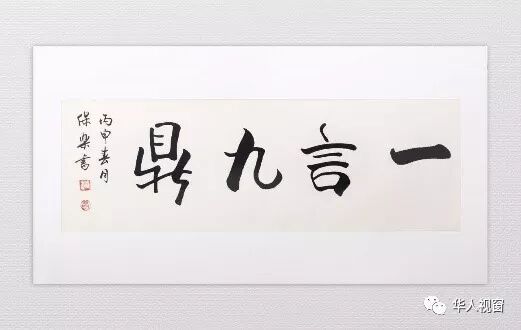 一言九鼎
丙申春月
保樂書
华人视窗